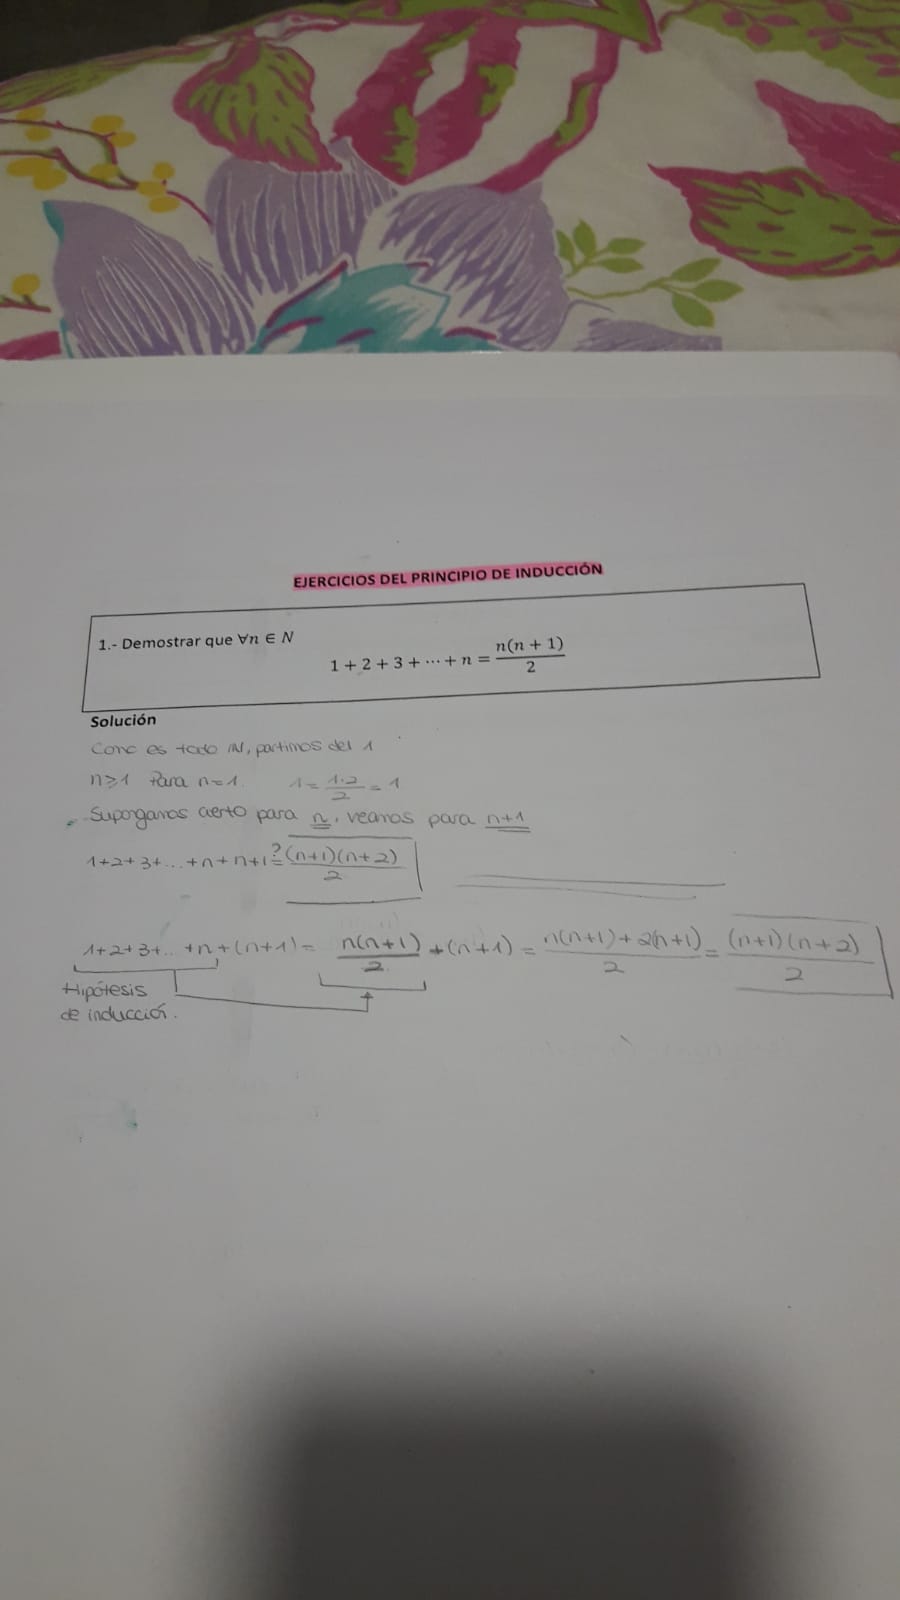 EJERCICIOS DEL PRINCIPIO DE INDUCCIÓN
1.- Demostrar que ∀n ∈ N
1 + 2 + 3 + ··· + n = n(n + 1)/2
Solución
Como es todo ℕ, partimos del 1
n≥1 Para n=1. 1 = 1·2/2 = 1
Supongamos cierto para n, veamos para n+1
1+2+3+...+n+n+1 ?= (n+1)(n+2)/2
1+2+3+...+n+(n+1) = n(n+1)/2 + (n+1) = n(n+1)+2(n+1)/2 = (n+1)(n+2)/2
Hipótesis
de inducción.